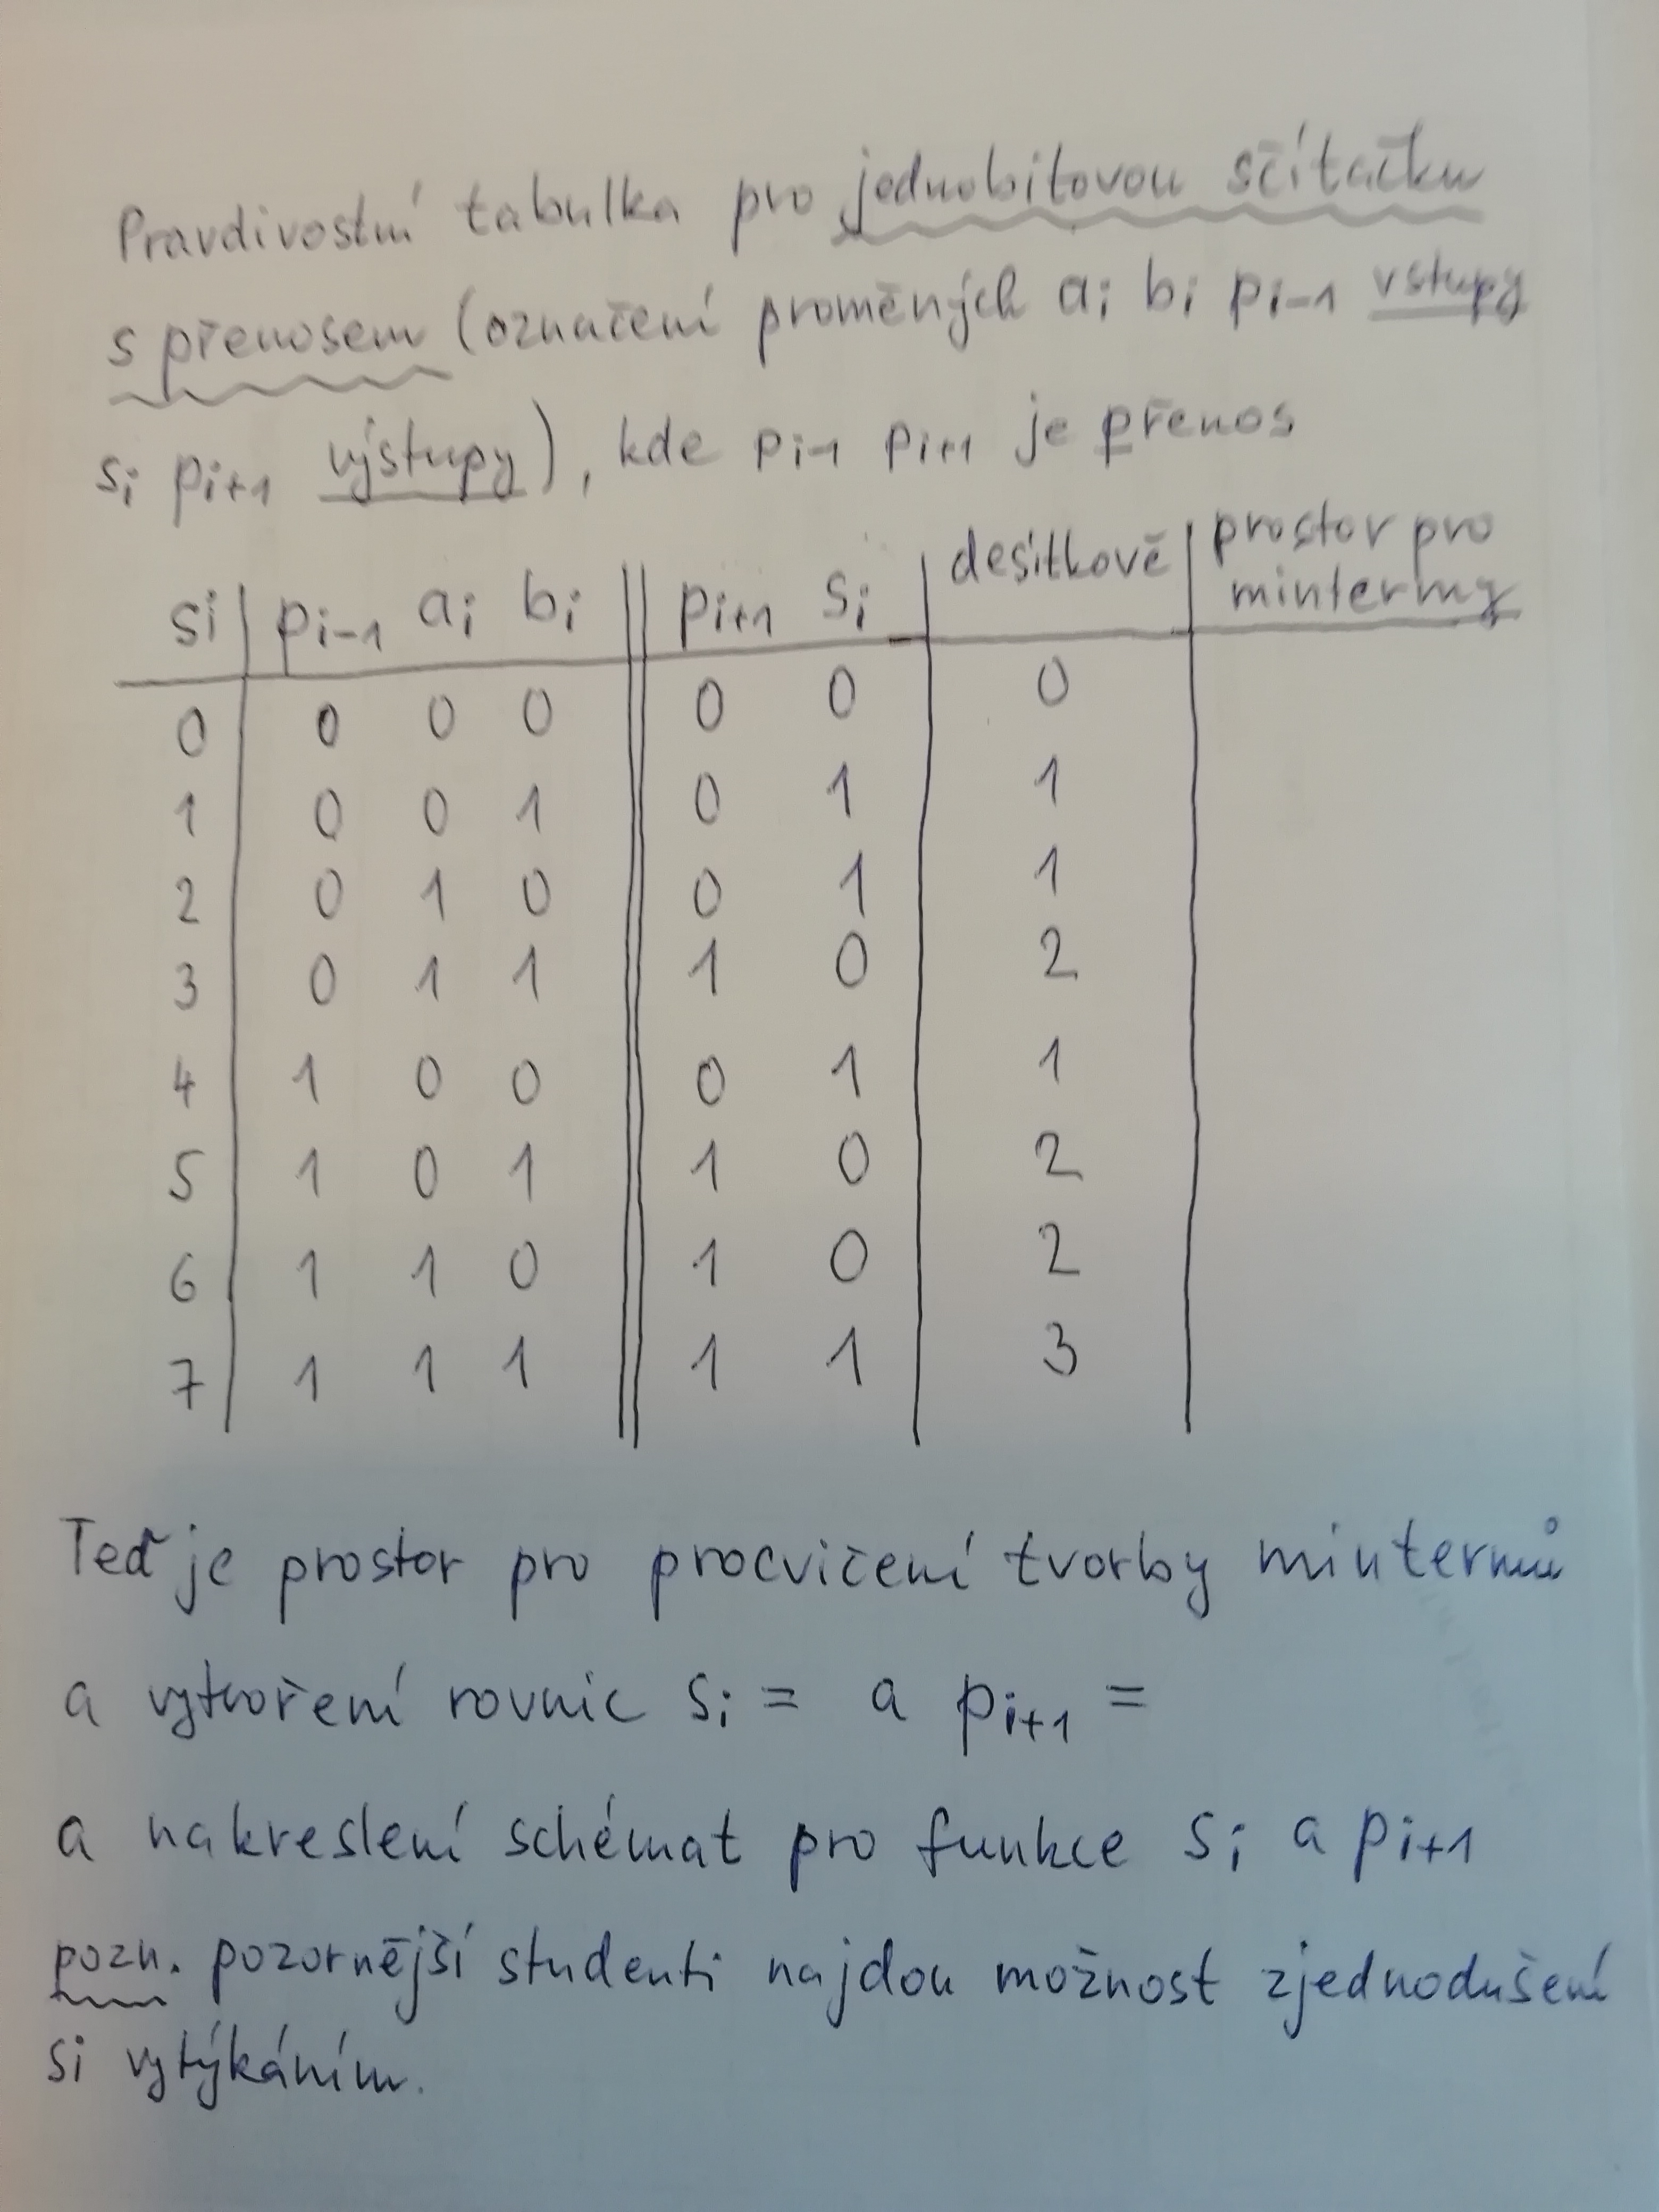 Pravdivostní tabulka pro jednobitovou sčítačku
s přenosem (označení proměných ai bi pi-1 vstupy
si pi+1 výstupy), kde pi-1 pi+1 je přenos
si pi-1 ai bi pi+1 si desítkově prostor pro
mintermy
0 0 0 0 0 0 0
1 0 0 1 0 1 1
2 0 1 0 0 1 1
3 0 1 1 1 0 2
4 1 0 0 0 1 1
5 1 0 1 1 0 2
6 1 1 0 1 0 2
7 1 1 1 1 1 3
Teď je prostor pro procvičení tvorby mintermů
a vytvoření rovnic si = a pi+1 =
a nakreslení schémat pro funkce si a pi+1
pozn. pozornější studenti najdou možnost zjednodušení
si vytýkáním.